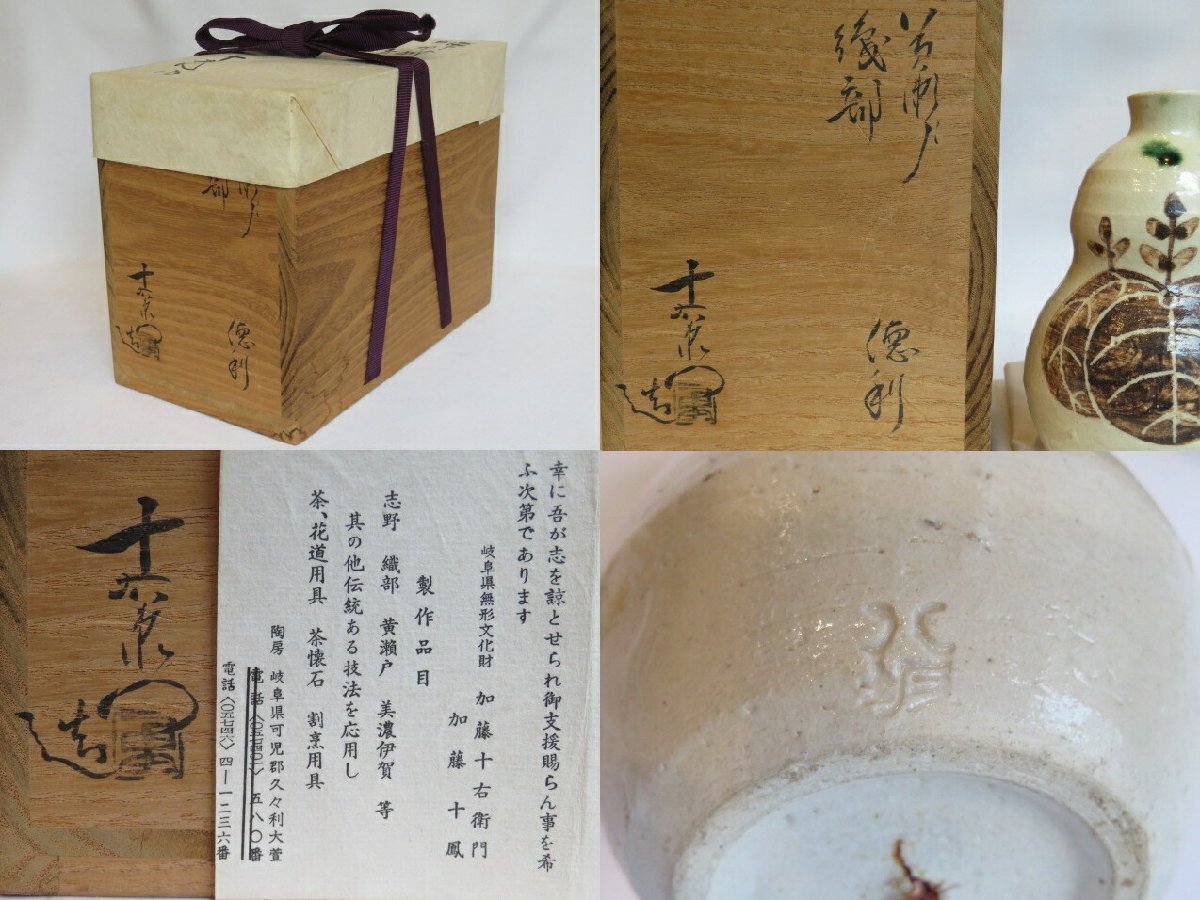 瀬戸
部
徳利
十右衛門
造
黄瀬戸
織部
徳利
十右衛門
造
幸に吾が志を諒とせられ御支援賜らん事を希
ふ次第であります
岐阜県無形文化財 加藤十右衛門
加藤十鳳
製作品目
志野 織部 黄瀬戸 美濃伊賀 等
其の他伝統ある技法を応用し
茶、花道用具 茶懐石 割烹用具
陶房 岐阜県可児郡久々利大萱
電話 五八〇番
電話〈〇五七四六〉四―一二三六番
十右衛門
造